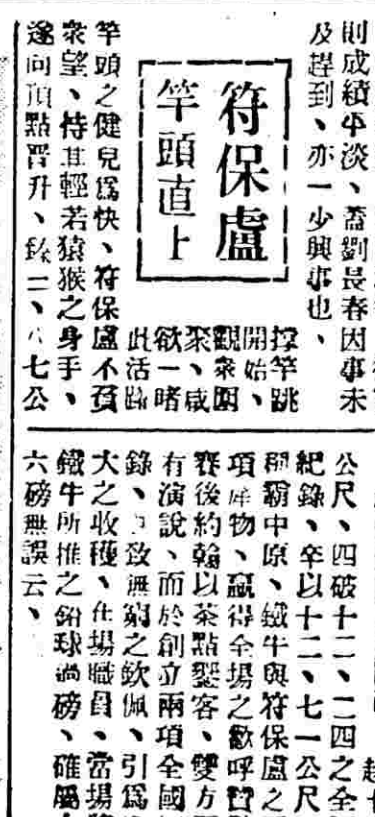 則成績平淡、蓋劉長春因事未
及趕到、亦一少興事也、
符保盧
竿頭直上
撑竿跳
開始、
觀衆圍
聚、咸
欲一睹
此活躍
竿頭之健兒爲快、符保盧不負
衆望、恃其輕若猿猴之身手、
遂向頂點晋升、錄二、八七公
公尺、四破十二、二四之全
紀錄、卒以十二、七一公尺
稱霸中原、鐵牛與符保盧之
項 物、贏得全場之歡呼
賽後約翰以茶點饗客、雙方
有演說、而於創立兩項全國
錄、 致無窮之欽佩、引爲
大之收穫、在場職員、當場
鐵牛所推之鉛球過磅、確屬
六磅無誤云、